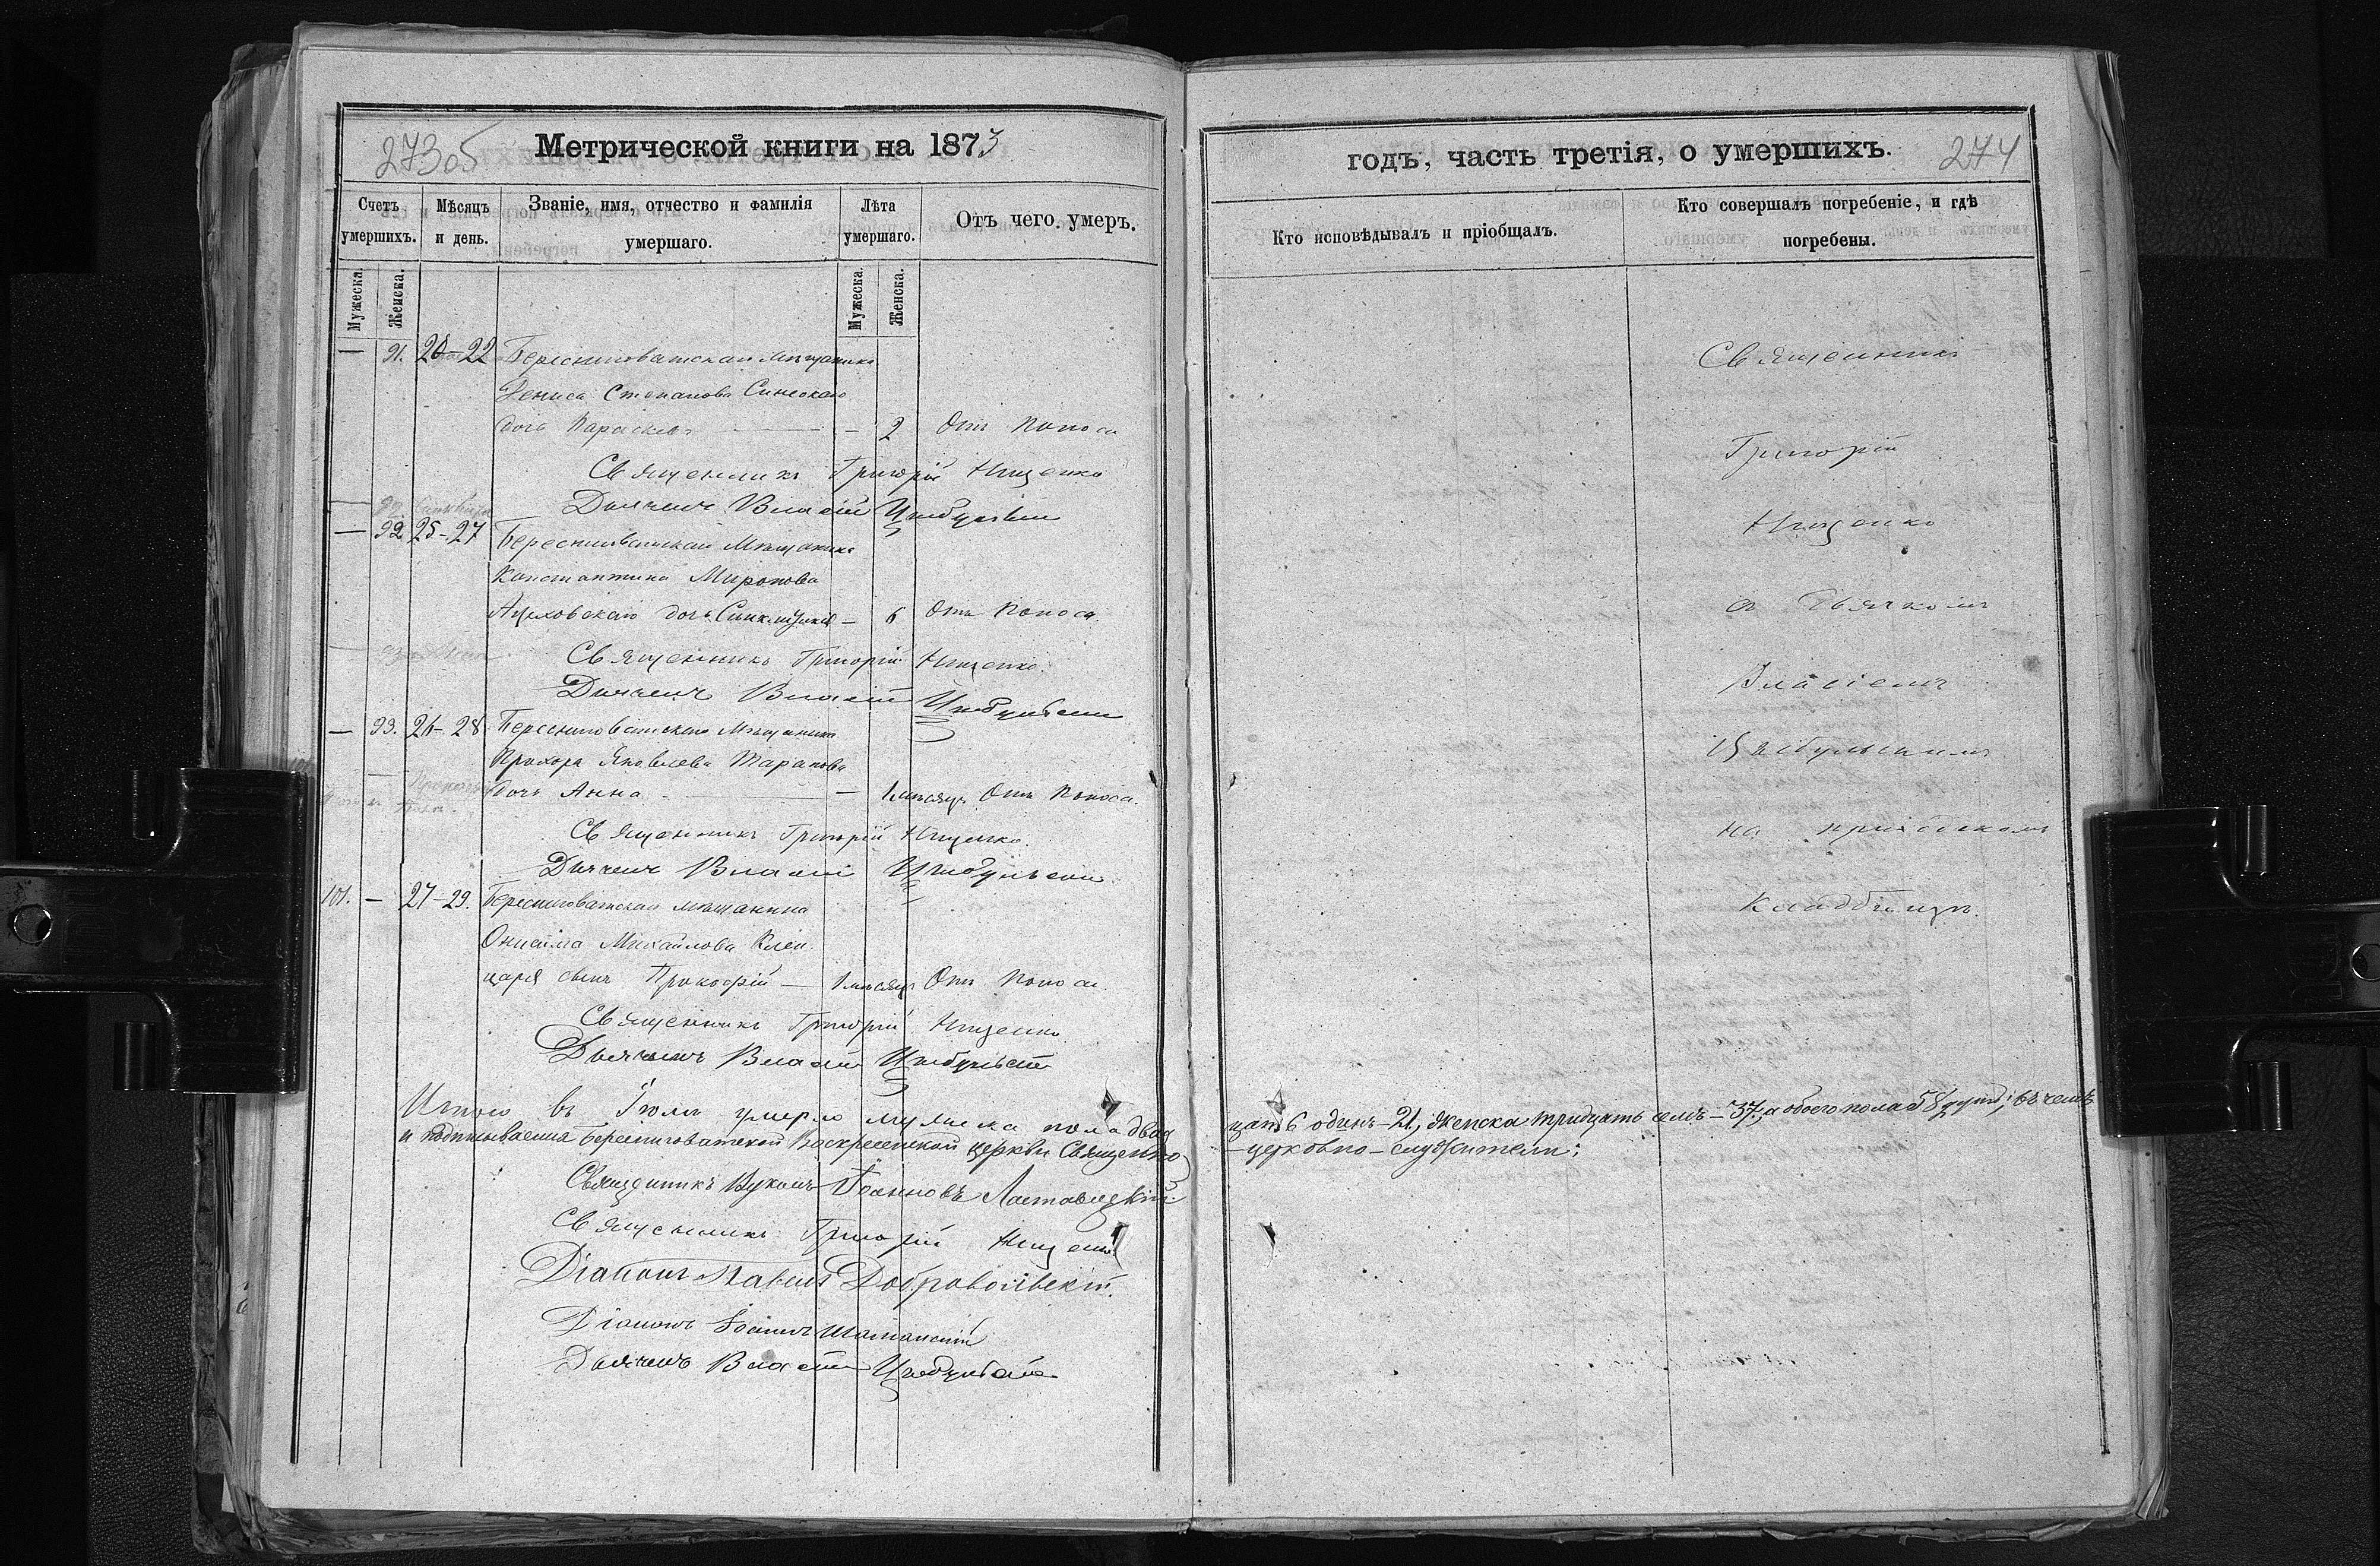 273об
Метрической книги на 1873
Счетъ умершихъ.
Мѣсяцъ и день.
Званіе, имя, отчество и фамилія умершаго.
Лѣта умершаго.
Отъ чего умеръ.
Мужеска.
Женска.
Мужеска.
Женска.
— 91. 20-22 Береснеговатскаго мѣщанина
Дениса Степанова Синеокаго
дочь Параскева — 2 Отъ поноса
Священникъ Григорій Нищенко
Дьячекъ Власій Цыбульскій
— 92 25-27 Береснеговатскаго мѣщанина
Константина Миронова
дочь — 6 Отъ поноса.
Священникъ Григорій Нищенко.
Дьячекъ Власій Цыбульскій
— 93. 26-28 Береснеговатскаго мѣщанина
Прохора Яковлева Таранова
дочь Анна — 1 мѣсяцъ Отъ поноса.
Священникъ Григорій Нищенко.
Дьячекъ Власій Цыбульскій
101. — 27-29. Береснеговатскаго мѣщанина
Онисима Михайлова
царя сынъ Прокофій — 1 мѣсяцъ Отъ поноса.
Священникъ Григорій Нищенко
Дьячекъ Власій Цыбульскій
Итого въ Іюлѣ умерло мужеска пола двад
и подписываемся Береснеговатской Воскресенской церкви Священно
Священникъ Вуколъ Іоанновъ
Священникъ Григорій Нищенко
Діаконъ Павелъ Добровольскій.
Діаконъ Іоаннъ Шаманскій
Дьячекъ Власій Цыбульскій
годъ, часть третія, о умершихъ.
274
Кто исповѣдывалъ и пріобщалъ.
Кто совершалъ погребеніе, и гдѣ погребены.
Священникъ
Григорій
Нищенко
съ Дьячкомъ
Власіемъ
Цыбульскимъ
на приходскомъ
кладбищѣ.
цать одинъ-21, женска тридцать семь-37, а обоего пола 58 душъ; въ чемъ
-церковно-служители: